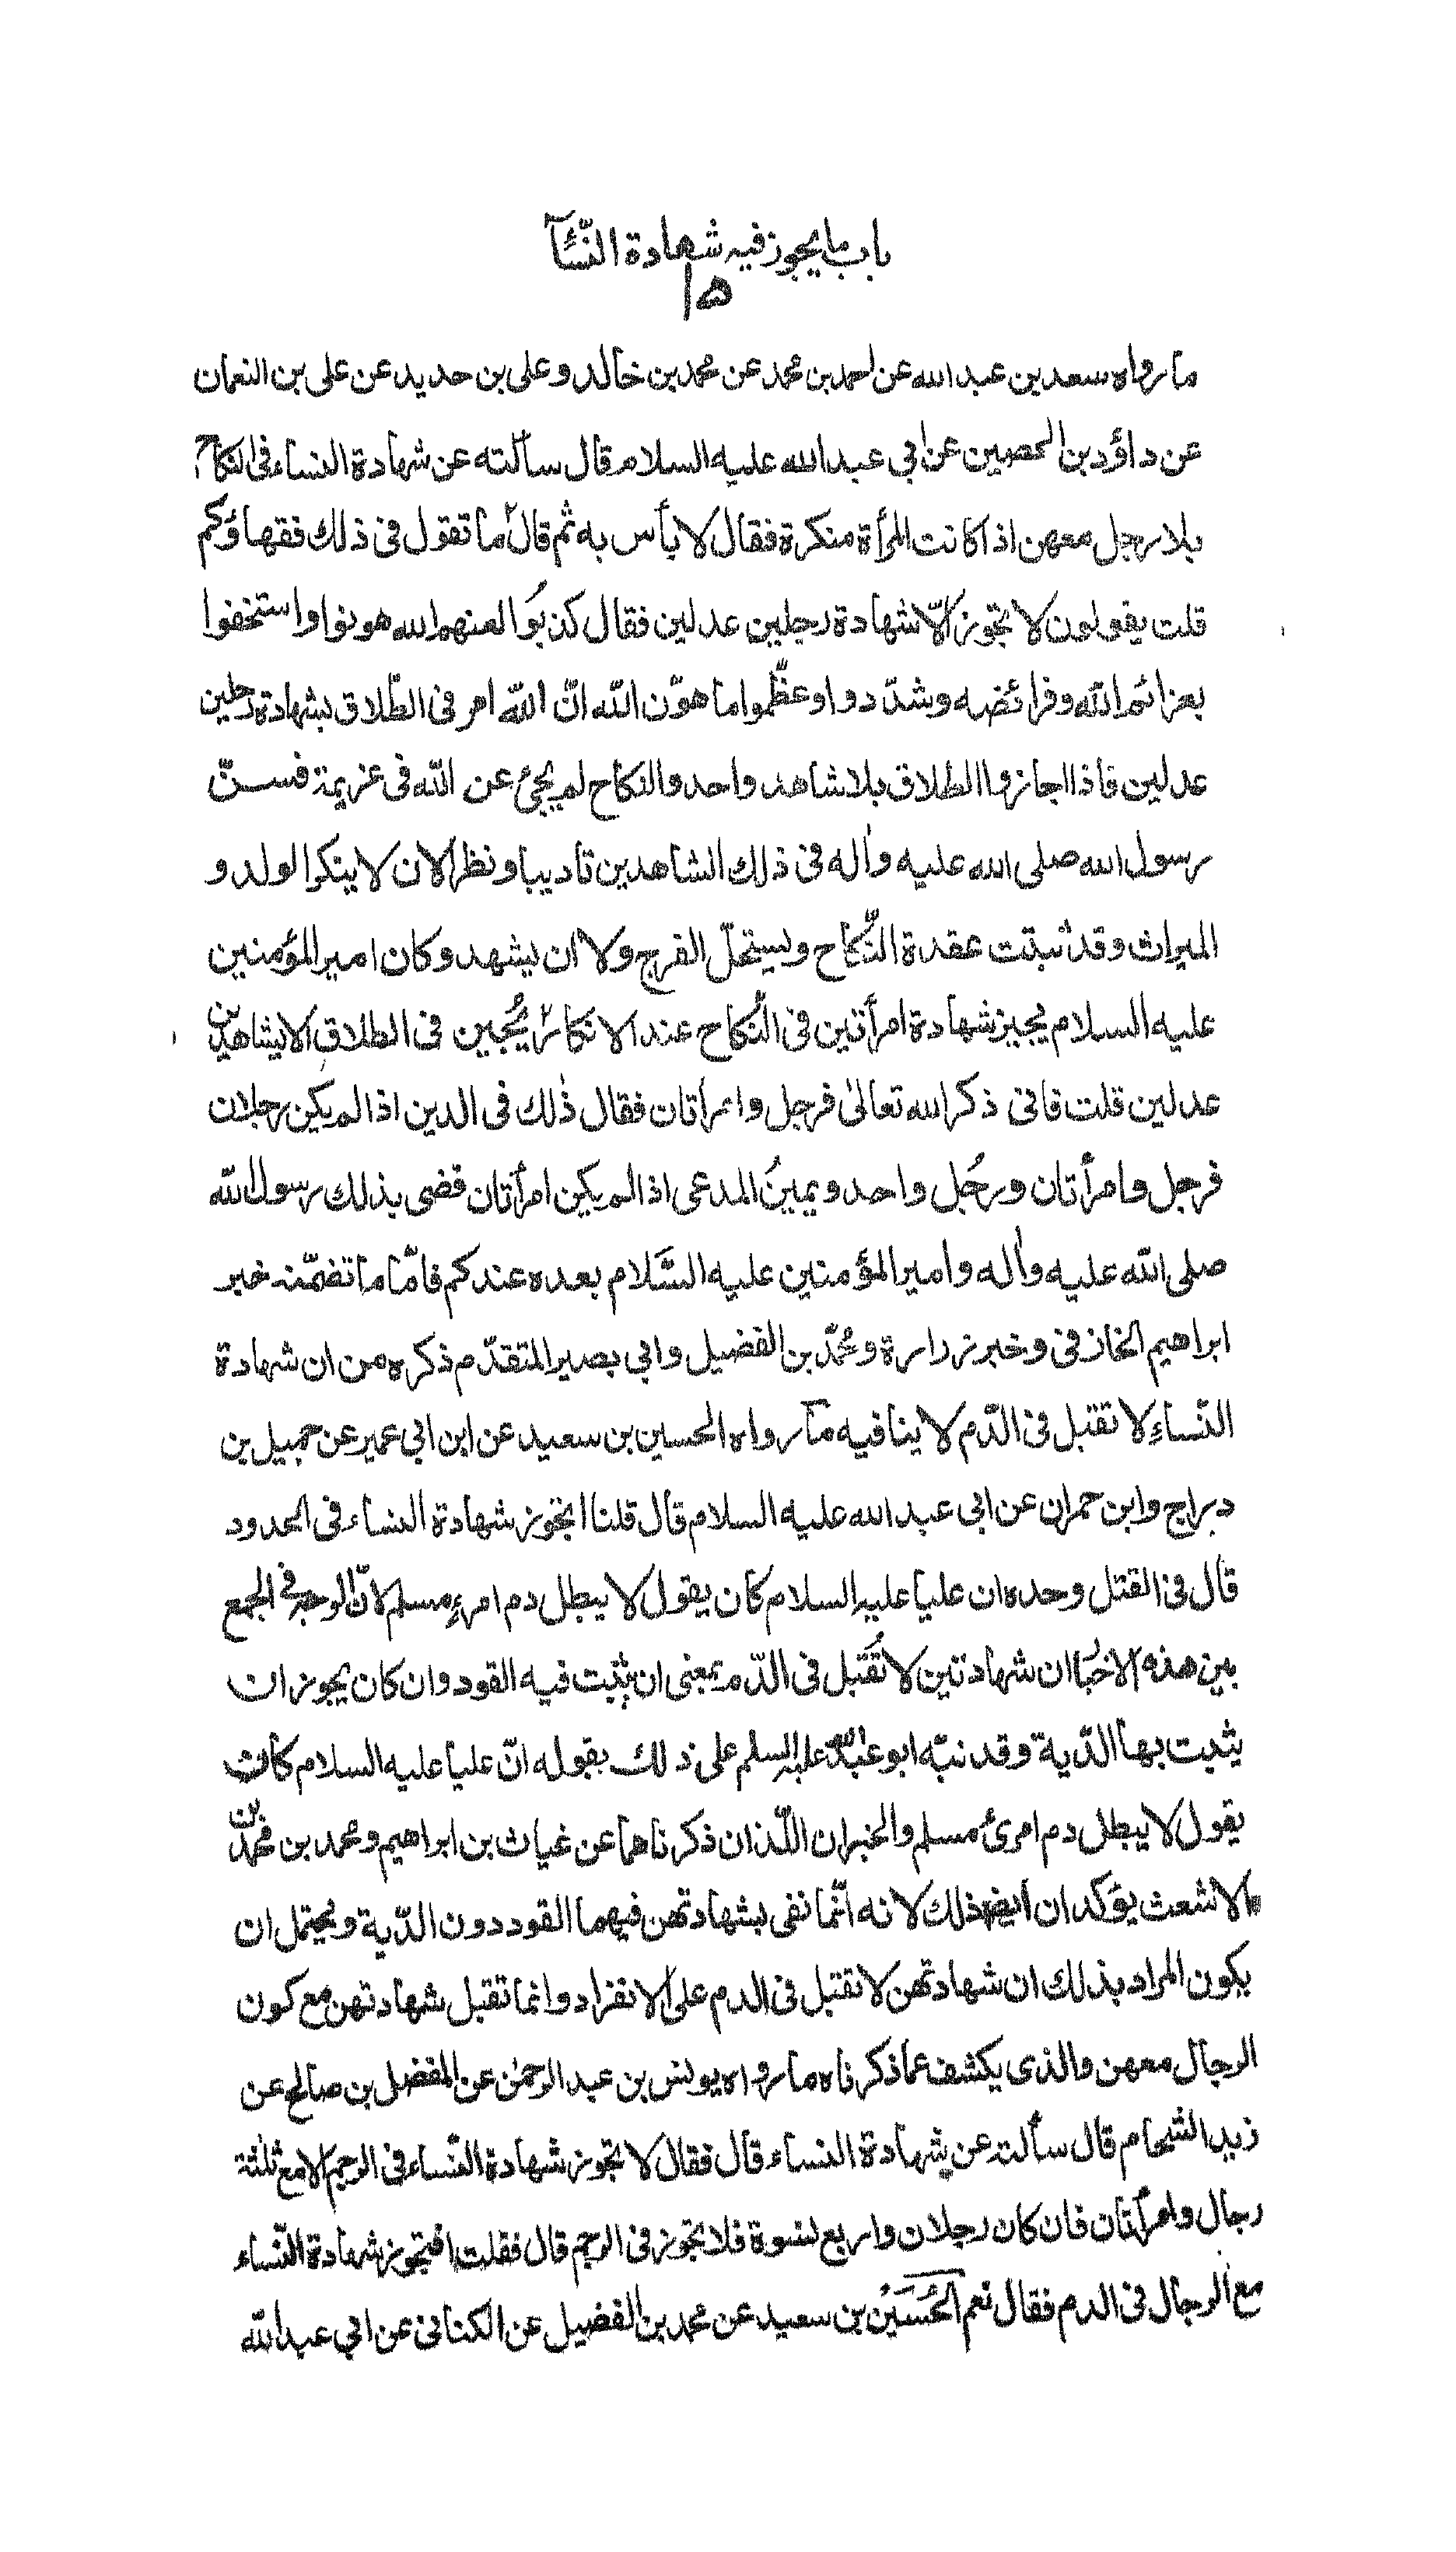 باب ما يجوز فيه شهادة النّسَاۤ
١٥
ما رواه سعد بن عبد الله عن احمد بن محمد عن محمد بن خالد و على بن حديد عن على بن النعمان
عن داؤد بن الحصين عن ابي عبد الله عليه السلام قال سألته عن شهادة النساء فى النكاح
بلا رجل معهن اذا كانت المرأة منكرة فقال لا بأس به ثم قال ما تقول فى ذلك فقهاؤكم
قلت يقولون لا تجوز الّا شهادة رجلين عدلين فقال كذبُوا لعنهم الله هونوا واستخفوا
بعزائم الله وفرائضه وشدّ دوا وعظّموا ما هوّن الله انّ اللّه امر فى الطّلاق بشهادة رجلين
عدلين فاذا اجازوا الطلاق بلا شاهد واحد والنكاح لم يجئ عن الله فى عزيمة فسنّ
رسول الله صلى الله عليه واٰله فى ذلك الشاهدين تاديبا ونظرا لان لا ينكر الولد و
الميراث وقد ثبتت عقدة النّكاح ويستحلّ الفرج ولا ان يشهد وكان امير المؤمنين
عليه السلام يجيز شهادة امرأتين فى النّكاح عند الانكار يُجيز فى الطلاق الا شاهدين
عدلين قلت فانى ذكر الله تعالىٰ فرجل وامرأتان فقال ذٰلك فى الدين اذا لم يكن رجلان
فرجل وامرأتان ورجُل واحد ويمينُ المدعى اذا لم يكن امرأتان قضى بذلك رسول الله
صلى اللّه عليه واٰله وامير المؤمنين عليه السَّلام بعده عندكم فامّا ما تضمّنه خبر
ابراهيم الخازفى وخبر زرارة ومحمّد بن الفضيل وابى بصير المتقدّم ذكره من ان شهادة
النّساءِ لا تقبل فى الدّم لا ينافيه مآ رواه الحسين بن سعيد عن ابن ابى عمير عن جميل بن
دراج وابن حمران عن ابى عبد الله عليه السلام قال قلنا اتجوز شهادة النساء فى الحدود
قال فى القتل وحده ان عليا عليه السلام كان يقول لا يبطل دم امرءٍ مسلم لانّ الوجه فى الجمع
بين هذه الاخبا ان شهادتين لا تُقبل فى الدّم بمعنى ان يثبت فيه القود وان كان يجوز ان
يثبت بها الدّية وقد نبّه ابو عبد الله عليه السلم على ذلك بقوله انّ عليا عليه السلام كان
يقول لا يبطل دم امرئ مسلم والخبران اللّذان ذكرناهما عن غياث بن ابراهيم ومحمد بن محمد بن
الاشعث يؤكدان ايضا ذلك لانه انّما نفى بشهادتهن فيهما القود دون الدّية ويحتمل ان
يكون المراد بذلك ان شهادتهن لا تقبل فى الدم على الانفراد وانما تقبل شهادتهن مع كون
الرجال معهن والذى يكشف عما ذكرناه ما رواه يونس بن عبد الرحمٰن عن المفضل بن صالح عن
زيد الشحام قال سألته عن شهادة النساء قال فقال لا تجوز شهادة النّساء فى الرجم الا مع ثلٰثة
رجال وامرأتان فان كان رجلان واربع نسوة فلا تجوز فى الرجم قال فقلت افتجوز شهادة النّساء
مع الرجال فى الدم فقال نعم الحُسَيْن بن سعيد عن محمد بن الفضيل عن الكنانى عن ابي عبد اللّه